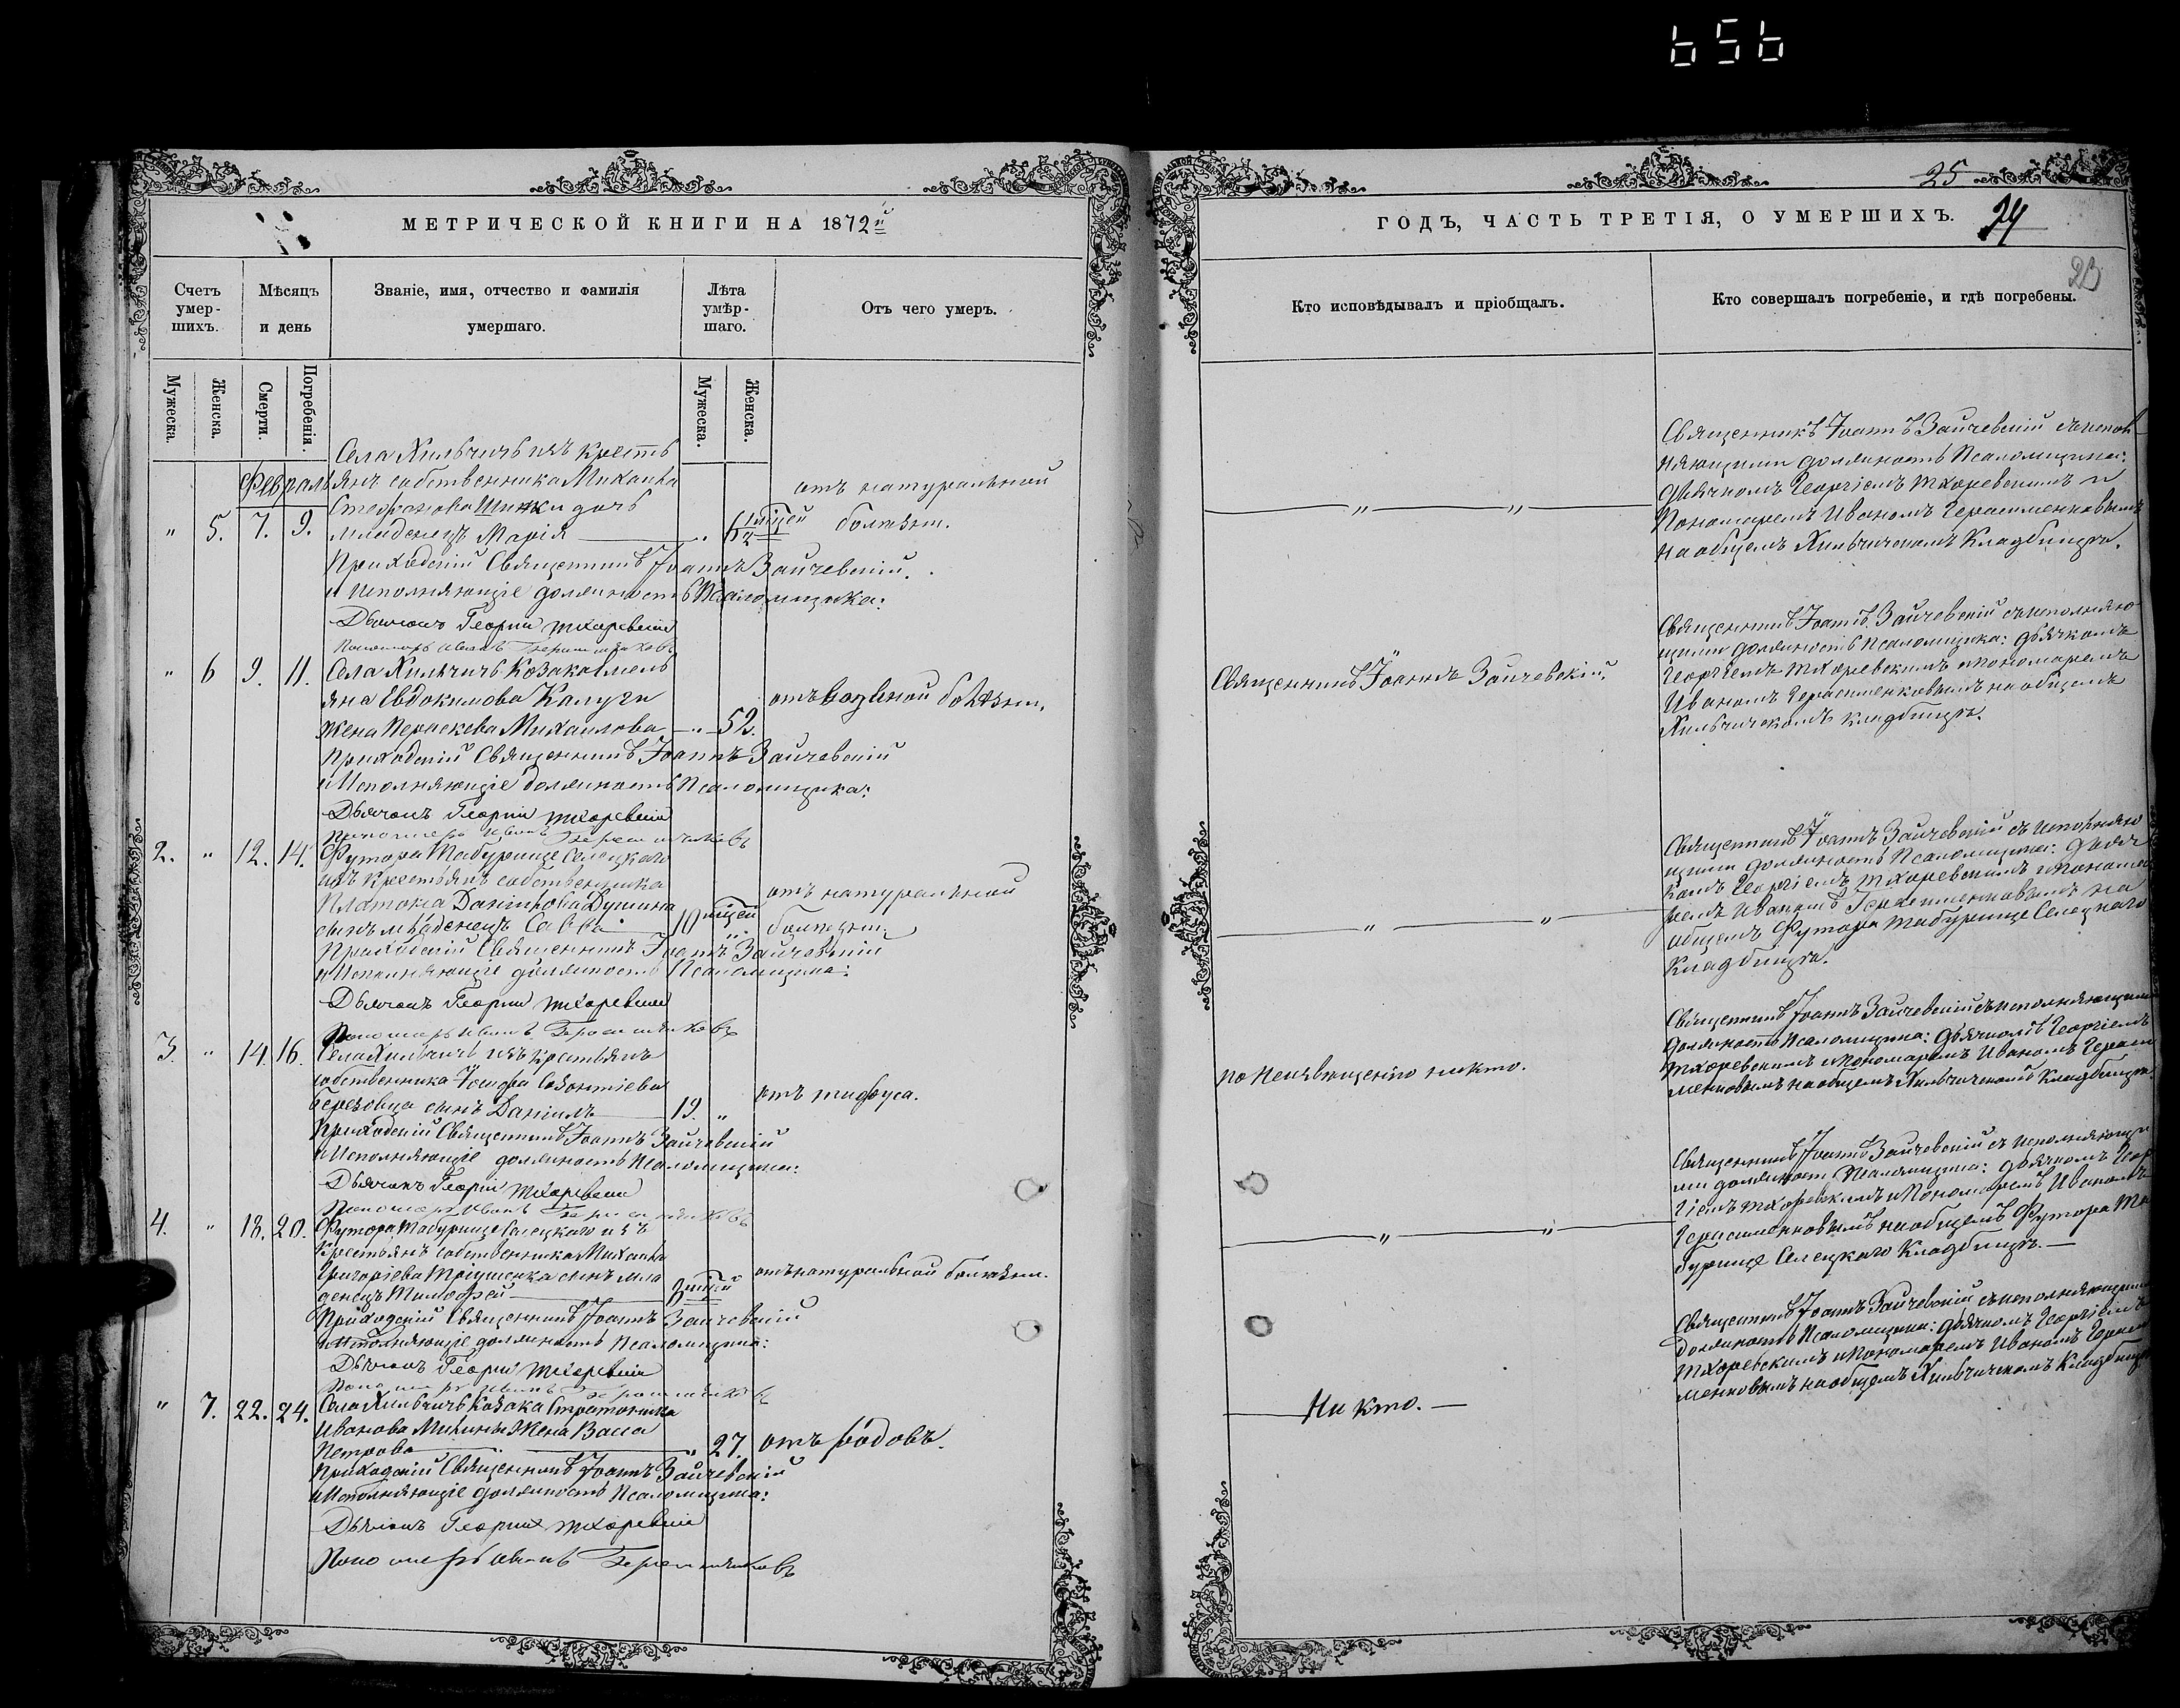 656
МЕТРИЧЕСКОЙ КНИГИ НА 1872й
Счетъ умер-шихъ.
Мѣсяцъ и день
Званіе, имя, отчество и фамилія умершаго.
Лѣта умѣр-шаго.
Отъ чего умеръ.
Мужеска.
Женска.
Смерти.
Погребенія.
Мужеска.
Женска.
Февраль
Села Хильчичъ изъ крестъ
янъ собственника Михаила
Стефанова дочь
" 5. 7. 9. младенецъ Марія " 6½ мцей
отъ натуральной
болѣзн.
Приходскій Священникъ Іоаннъ Зайчевскій.
и Исполняющіе должность Псаломщика:
Дьячокъ Георгій Тхоревскій
Пономарь Иванъ Герасименковъ
" 6 9. 11. Села Хильчичъ Козака Емель
яна Евдокимова Калуги
жена Параскева Михаилова " 52.
отъ водяной болѣзн.
Приходскій Священникъ Іоаннъ Зайчевскій
и Исполняющіе должность Псаломщика:
Дьячокъ Георгій Тхоревскій
Пономарь Иванъ Герасименковъ
2. " 12. 14. Футора Табурище Селецкаго
изъ крестьянъ собственника
Платона Данилова
сынъ младенецъ Савва 10 мцей "
отъ натуральной
болѣзн.
Приходскій Священникъ Іоаннъ Зайчевскій
и Исполняющіе должность Псаломщика:
Дьячокъ Георгій Тхоревскій
Пономарь Иванъ Герасименковъ
3. " 14. 16. Села Хильчичъ изъ крестьянъ
собственника Іосифа Леонтіева
Березовца сынъ Даніилъ 19. "
отъ тифуса.
Приходскій Священникъ Іоаннъ Зайчевскій
и Исполняющіе должность Псаломщика:
Дьячокъ Георгій Тхоревскій
Пономарь Иванъ Герасименковъ
4. " 18. 20. Футора Табурище Селецкаго изъ
крестьянъ собственника Михаила
Григоріева сынъ мла
денецъ Тимофей 8 мцей
отъ натуральной болѣзн.
Приходскій Священникъ Іоаннъ Зайчевскій
и Исполняющіе должность Псаломщика:
Дьячокъ Георгій Тхоревскій
Пономарь Иванъ Герасименковъ
" 7. 22. 24. Села Хильчичъ Козака Стратоника
Иванова Михины жена Васса
Петрова " 27.
отъ родовъ.
Приходскій Священникъ Іоаннъ Зайчевскій
и Исполняющіе должность Псаломщика:
Дьячокъ Георгій Тхоревскій
Пономарь Иванъ Герасименковъ
25
ГОДЪ, ЧАСТЬ ТРЕТІЯ, О УМЕРШИХЪ.
24
23
Кто исповѣдывалъ и пріобщалъ.
Кто совершалъ погребеніе, и гдѣ погребены.
" "
Священникъ Іоаннъ Зайчевскій съ испол
няющими должность Псаломщика:
Дьячкомъ Георгіемъ Тхоревскимъ и
Пономаремъ Иваномъ Герасименковымъ
на общемъ Хильчичскомъ Кладбищѣ.
Священникъ Іоаннъ Зайчевскій.
Священникъ Іоаннъ Зайчевскій съ исполняю
щими должность Псаломщика: Дьячкомъ
Георгіемъ Тхоревскимъ и Пономаремъ
Иваномъ Герасименковымъ на общемъ
Хильчичскомъ кладбищѣ.
" "
Священникъ Іоаннъ Зайчевскій съ исполняю
щими должность Псаломщика: Дьяч
комъ Георгіемъ Тхоревскимъ и Понома
ремъ Иваномъ Герасименковымъ на
общемъ Футора Табурище Селецкаго
Кладбищѣ.
по Неизвѣщенію никто.
Священникъ Іоаннъ Зайчевскій съ исполняющими
должность Псаломщика: Дьячкомъ Георгіемъ
Тхоревскимъ и Пономаремъ Иваномъ Гераси
менковымъ на общемъ Хильчичскомъ Кладбищѣ.
" "
Священникъ Іоаннъ Зайчевскій съ исполняющи
ми должност Псаломщика: Дьячкомъ Геор
гіемъ Тхоревскимъ и Пономаремъ Иваномъ
Герасименковымъ на общемъ Футора Та
бурище Селецкаго Кладбищѣ.
Никто.
Священникъ Іоаннъ Зайчевскій съ исполняющими
должность Псаломщика: Дьячкомъ Георгіемъ
Тхоревскимъ и Пономаремъ Иваномъ Гераси
менковымъ на общемъ Хильчичскомъ Кладбищѣ